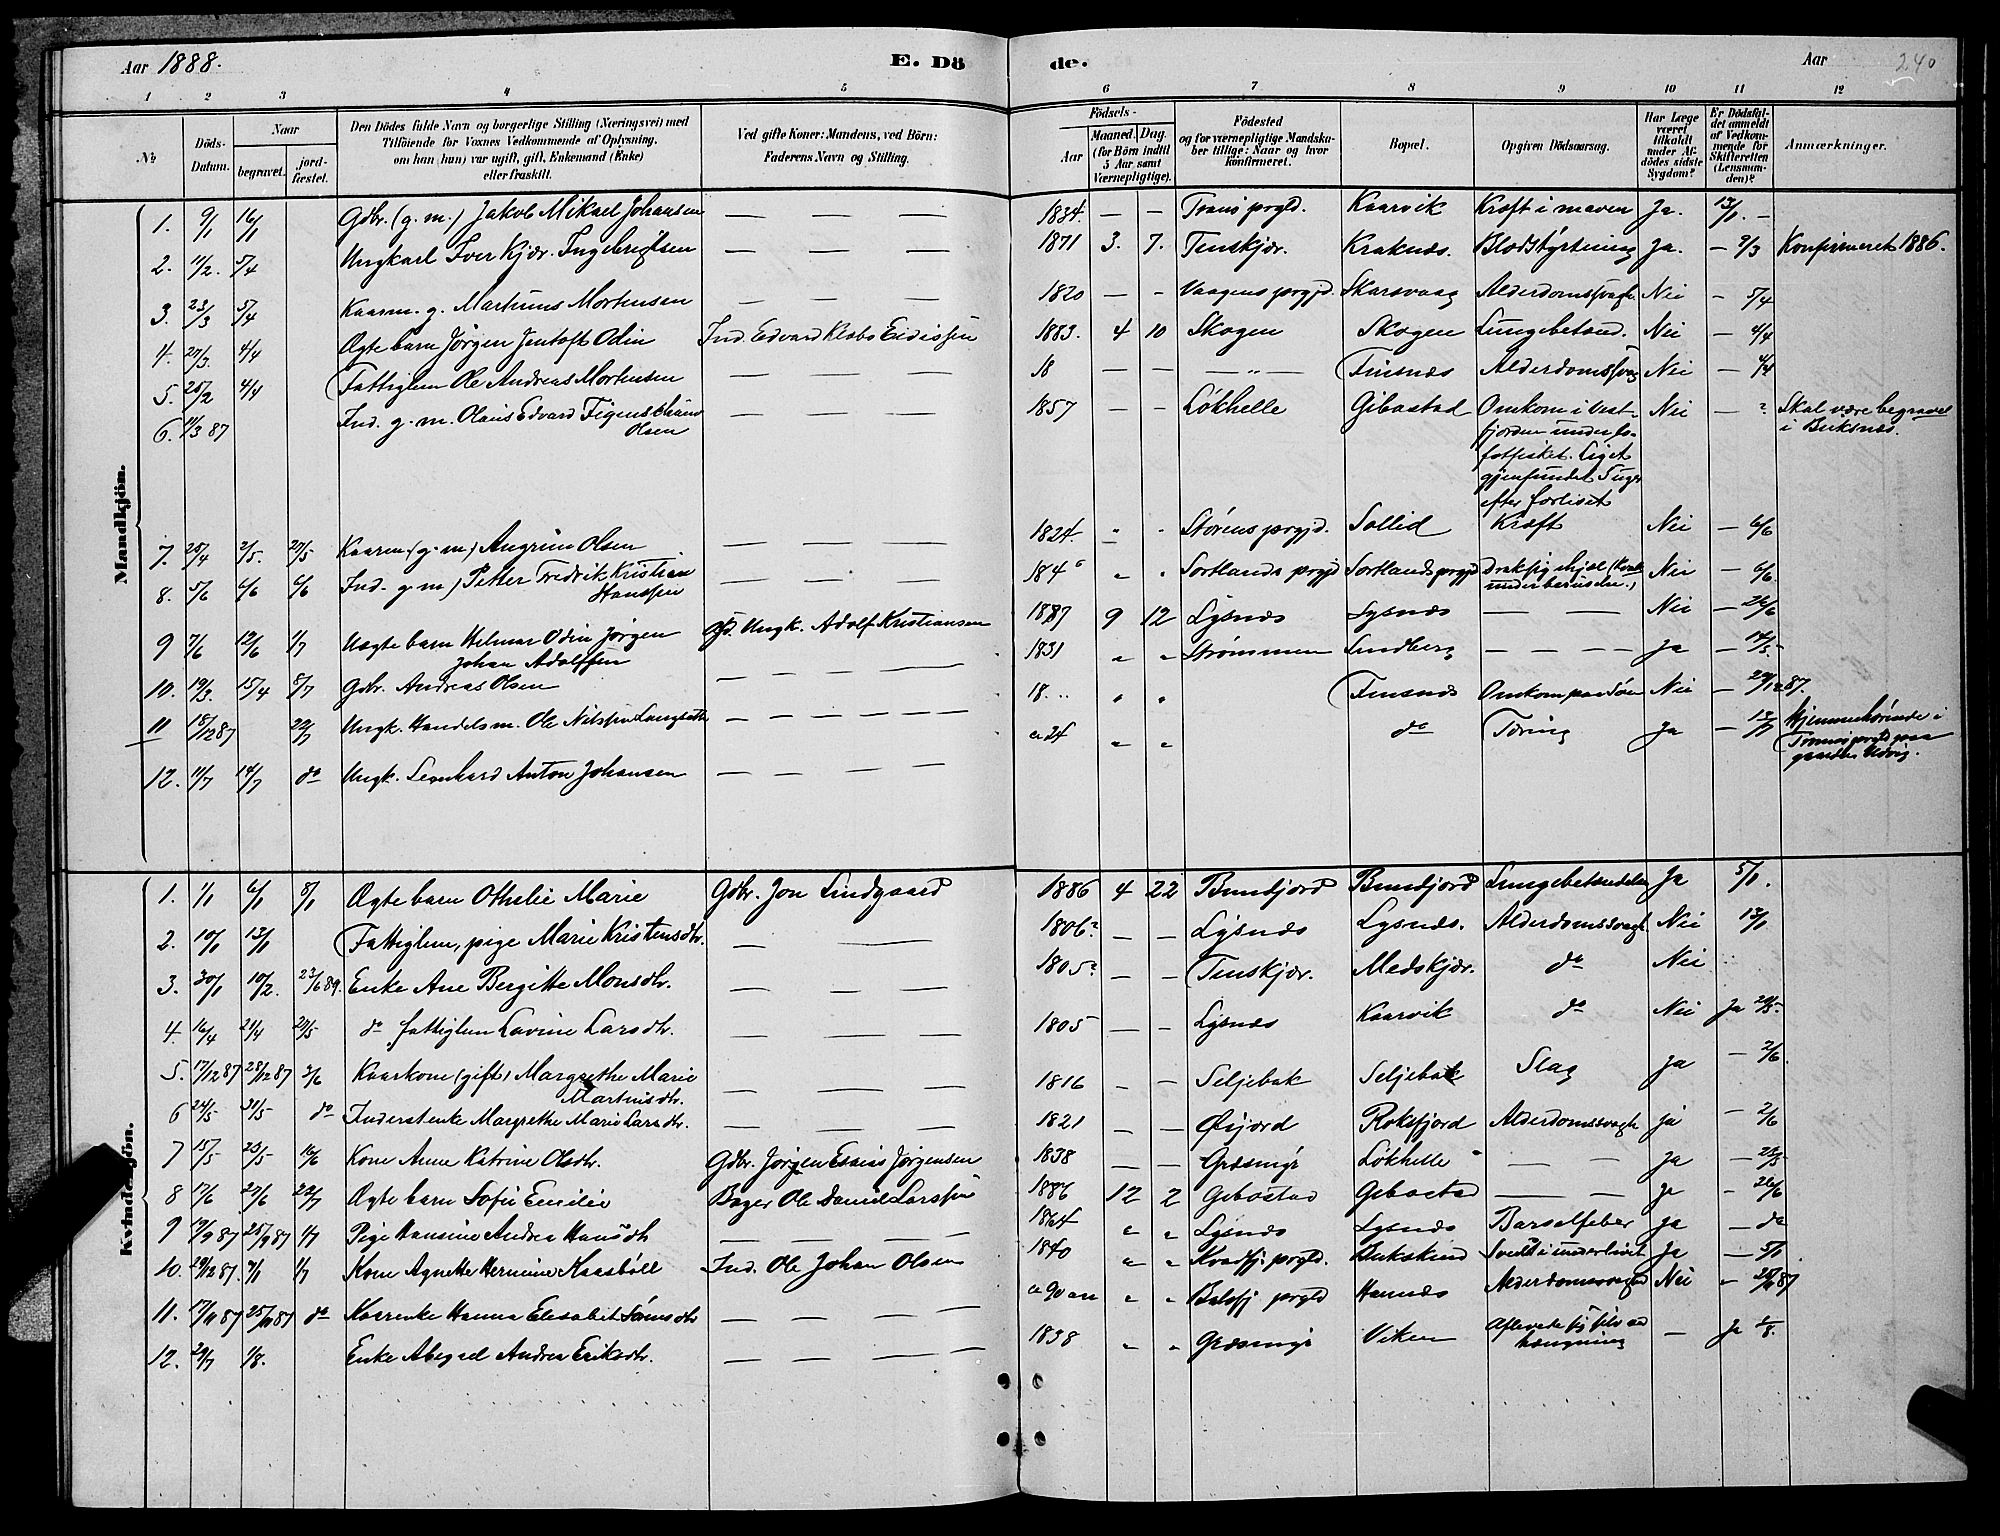 Aar 1888.
E. Dö
de.
Aar
240
1 2 3 4 5 6 7 8 9 10 11 12
№
Döds-Datum.
Naar
begravet.
jordfæstet.
Den Dödes fulde Navn og borgerlige Stilling (Næringsvei) med
Tilföiende for Voxnes Vedkommende af Oplysning,
om han (hun) var ugift, gift, Enkemand (Enke)
eller fraskilt.
Ved gifte Koner: Mandens, ved Börn:
Faderens Navn og Stilling.
Födsels-
Aar
Maaned. Dag.
(for Börn indtil
5 Aar samt
Værnepligtige).
Födested
og for værnepligtige Mandska-
ber tillige: Naar og hvor
konfirmeret.
Bopæl.
Opgiven Dödsaarsag.
Har Læge
været
tilkaldt
under Af-
dödes sidste
Sygdom?
Er Dödsfal-
det anmeldt
af Vedkom-
mende for
Skifteretten
(Lensman-
den)?
Anmærkninger.
Mandkjön.
1. 9/1 16/1 Gdbr. (g. m.) Jakob Mikael Johansen — — — 1834. — — Troms prgld. Kaarvik Kræft i maven Ja. 13/1. —
2. 11/2. 5/4 Ungkarl Iver Kjær. Ingebrigtsen — — — 1871 3. 7. Tenskjær. Kraknæs. Blodstyrtning Ja. — 9/3 Konfirmeret 1886.
3. 23/3 5/4 Kaarm. g. Martinus Mortensen — — — 1820 — - Vaagens prgjd. Skarsvaag Alderdomssvagh. Nei - 5/4
4. 27/3. 4/4 Ægte barn Jørgen Jentoft Odin Ind. Edvard Klabo Eidissen 1883. 4 10 Skogen Skogen Lungebetænd. Nei — 4/4
5. 25/2 4/4 Fattiglem Ole Andreas Mortensen — — — 18 — — — „ — Finsnæs Alderdomssvag Nei — 4/4
6. 11/3 87 Ind. g. m. Olaus Edvard Figenschau
Olsen — — — 1857 — - Løkhelle Gibostad Omkom i Vest-
fjorden under Lo-
fotfisket. Liget
gjenfundet 5 uger
efter forliset Nei — ? Skal være begravet
i Buksnæs.
7. 25/4 2/5. 27/5 Kaarm. (g. m) Angrim Olsen — — — 1824. " - Størens prgjd. Sollid Kræft Nei — 6/6
8. 5/6 6/6 6/6 Ind. g. m) Petter Fredrik Kristian
Hanssen — — — 1846 " " Sortlands prgjd Sortlands prgjd Drak sig ihjel
under beruselse.) Nei — 6/6.
9 7/6 12/6 1/7 Uægte barn Helmar Odin Jørgen
Johan Adolfsen Ungk. Adolf Kristiansen 1887 9 12 Lysnæs Lysnæs — — Nei — 26/6
10. 19/3. 15/4 8/7 Gdbr. Andreas Olsen — — — 1831 " " Strømmen Lindberg — — — Ja — 14/5.
11 18/12 87 22/7 Ungk. Handelsm. Ole Nilssen Langseth — — — — 18.. " " Finsnæs Omkom paa Søen Nei — 29/12 87.
12. 11/7 14/7 do Ungk. Lenhard Anton Johansen — — — ca 24 " " do Tæring Ja — 13/7 Hjemmehørende i
Tromsø prgld paa
gaarden Udvig.
Kvindekjön.
1. 1/1 6/1 8/1 Ægte barn Othelie Marie Gdbr. Jon Lindgaard 1886 4 22 Bundfjord Bundfjord Lungebetændelse Ja 5/1.
2. 10/1 13/1 Fattiglem, pige Marie Kristensdtr. — — — 1806? — — Lysnæs Lysnæs. Alderdomssvagh. Nei 13/1
3. 30/1 10/2. 23/6 89. Enke Ane Bergitte Monsdtr. — — — 1805? — — Tenskjær. Medskjær. do Nei
4. 16/4 21/4 29/5 do fattiglem Lavine Larsdtr. — — — 1805 — — Lysnæs Kaarvik do Nei Ja 29/5.
5. 17/12 87 28/12 87 2/6 Kaarkone (gift) Margrethe Marie
Martinsdtr. — — — 1816 — — Seljebak Seljebak Slag Ja — 2/6.
6 24/5 31/5 do Inderstenke Margrethe Marie Larsdtr. — — — 1821 — — Øsjord Roksfjord Alderdomssvagh. ja — 2/6
7 15/5 23/5 16/6 Kone Anne Katrine Olsdtr. Gdbr. Jørgen Esaias Jørgensen 1838 — — Græsmyr Løkhelle — — Ja — 28/5
8 17/6 27/6 22/7 Ægte barn Sofie Emilie Bager Ole Daniel Larssen 1886 12 2 Gebostad Gebostad — — Ja - 26/6
9 19/9 87 25/9 87 1/7 Pige Hansine Andrea Hansdtr — — — 1864 " " Lysnæs Lysnæs Barselfeber Ja — do
10. 29/12 87. 7/1 1/7 Kone Agnette Hermine Kaasböll Ind. Ole Johan Olsen 1840 " " Kvædfj. prgld. Bukskind i underlivet Ja — 5/1
11. 17/11 87 25/11 87 do Kaarenke Hanna Elisabet Tømsdtr — — — ca 90 aar " " Balsfj prgld Hamnæs Alderdomssvaghed Nei " 25/11 87
12. 29/7 1/8. Enke Abigael Andrea Eriksdtr. — — — 1838 " " Græsmyr Viken Aflivede sig selv ved
hængning — Ja 1/8.